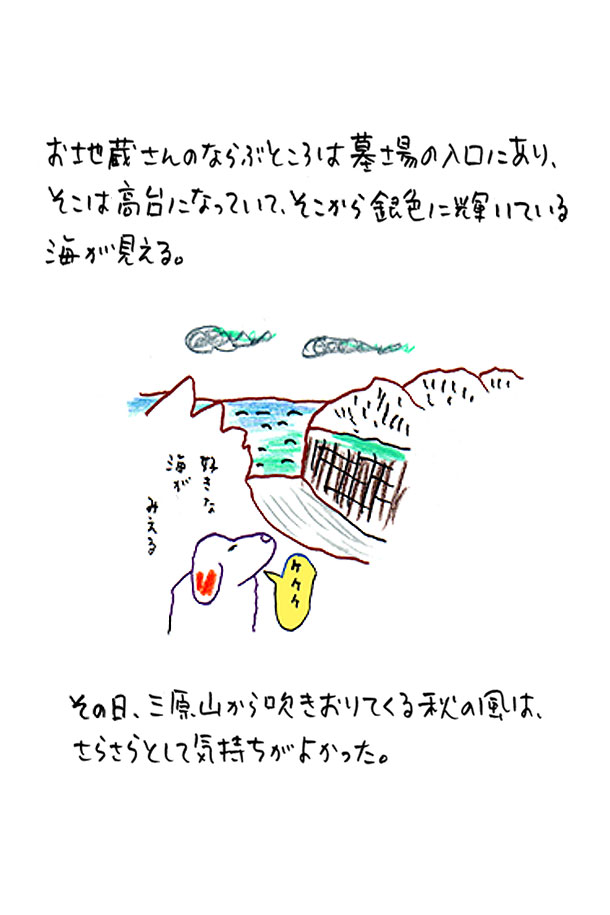 お地蔵さんのならぶところは墓場の入口にあり、
そこは高台になっていて、そこから銀色に輝いている
海が見える。
好きな
海が
みえる
ケケケ
その日、三原山から吹きおりてくる秋の風は、
さらさらとして気持ちがよかった。